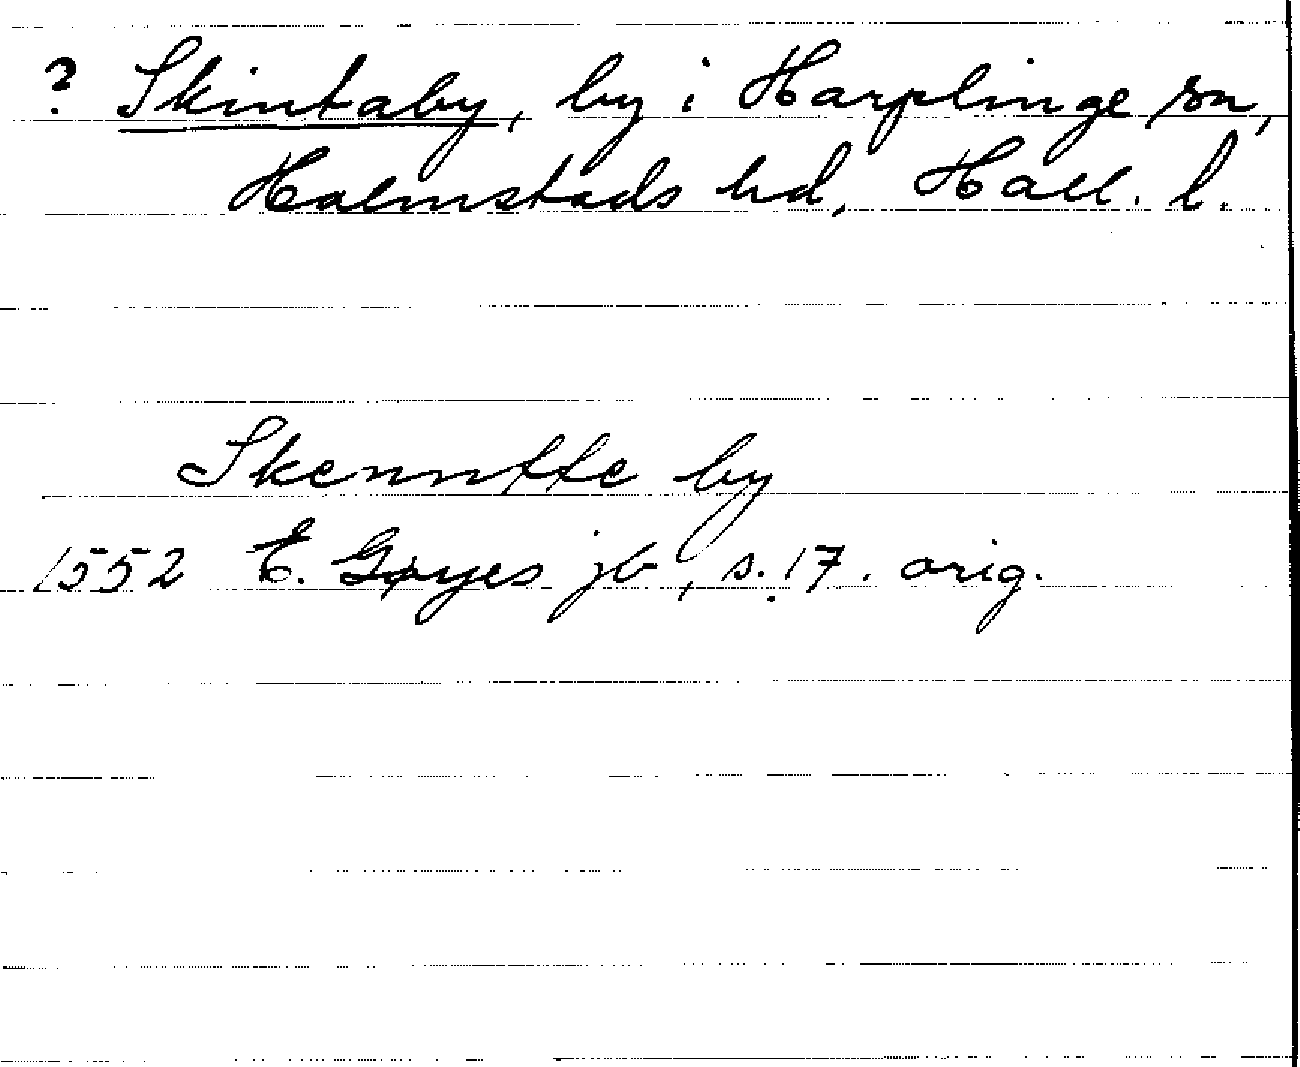 ? Skintaby, by i Harplinge sn,
Halmstads hd, Hall. l.
Skenntte by
1552 E. Gøyes jb, s. 17. orig.